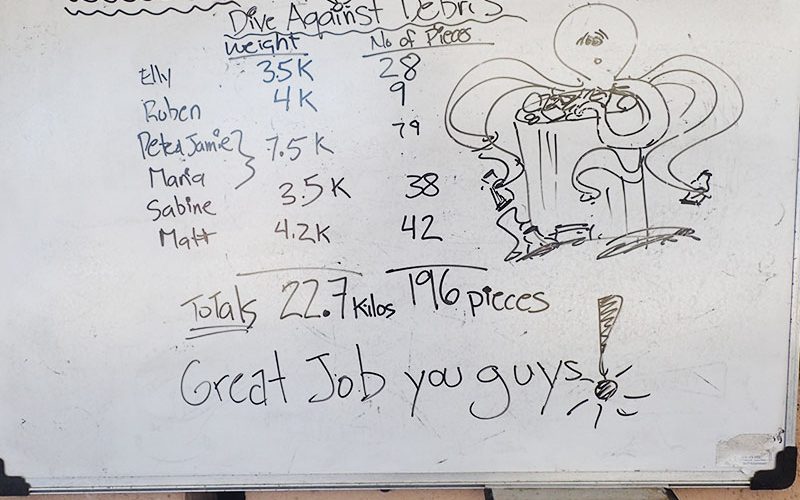 Dive Against Debris
Weight No of Pieces
Elly 3.5K 28
Ruben 4K 9
Pete & Jamie } 7.5K 79
Maria
Sabine 3.5K 38
Matt 4.2K 42
Totals 22.7 Kilos 196 pieces
Great Job you guys!